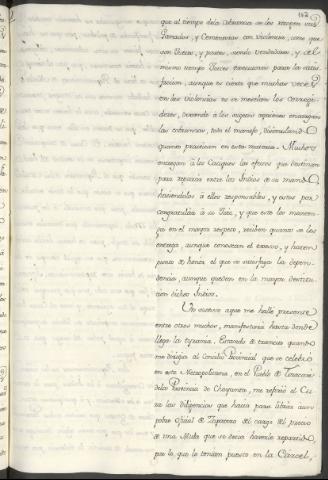 que al tiempo de la cobranza se les recogen sus
Ganados, y Sementeras con violencia, como que
son Partes, y
mismo tiempo Jueces executores para la satis
faccion, aunque es cierto que muchas veces
en las violencias no se mezclan los corregi
dores, porque á los sugetos
las cobranzas, todo el manejo, disimulando
quanto practican en esta materia. Muchos
encargan á los Caciques los efectos que destinan
para repartir entre los Indios de su mando,
haciendolos á ellos responsables, y estos por
congratular á su Juez, y que este los manten
ga en el mayor respeto, reciben quanto se les
entrega, aunque conozcan el exceso, y hacen
punto de honra el que se satisfaga la depen
dencia, aunque queden en la mayor destitu
cion dichos Indios.
Un suceso a que me hallé presente
entre otros muchos, manifestaria hasta donde
llega la tirania. Estando de transito quando
me dirigia al Concilio Provincial que se celebró
en esta Metropolitana, en el Pueblo de
de la Provincia de Chayanta, me refirió el Cu
ra las diligencias que hacia para librar a un
pobre oficial de Zapatero del cargo del precio
de una Mula que se decia haverle repartido
por lo que lo tenian puesto en la Carcel,